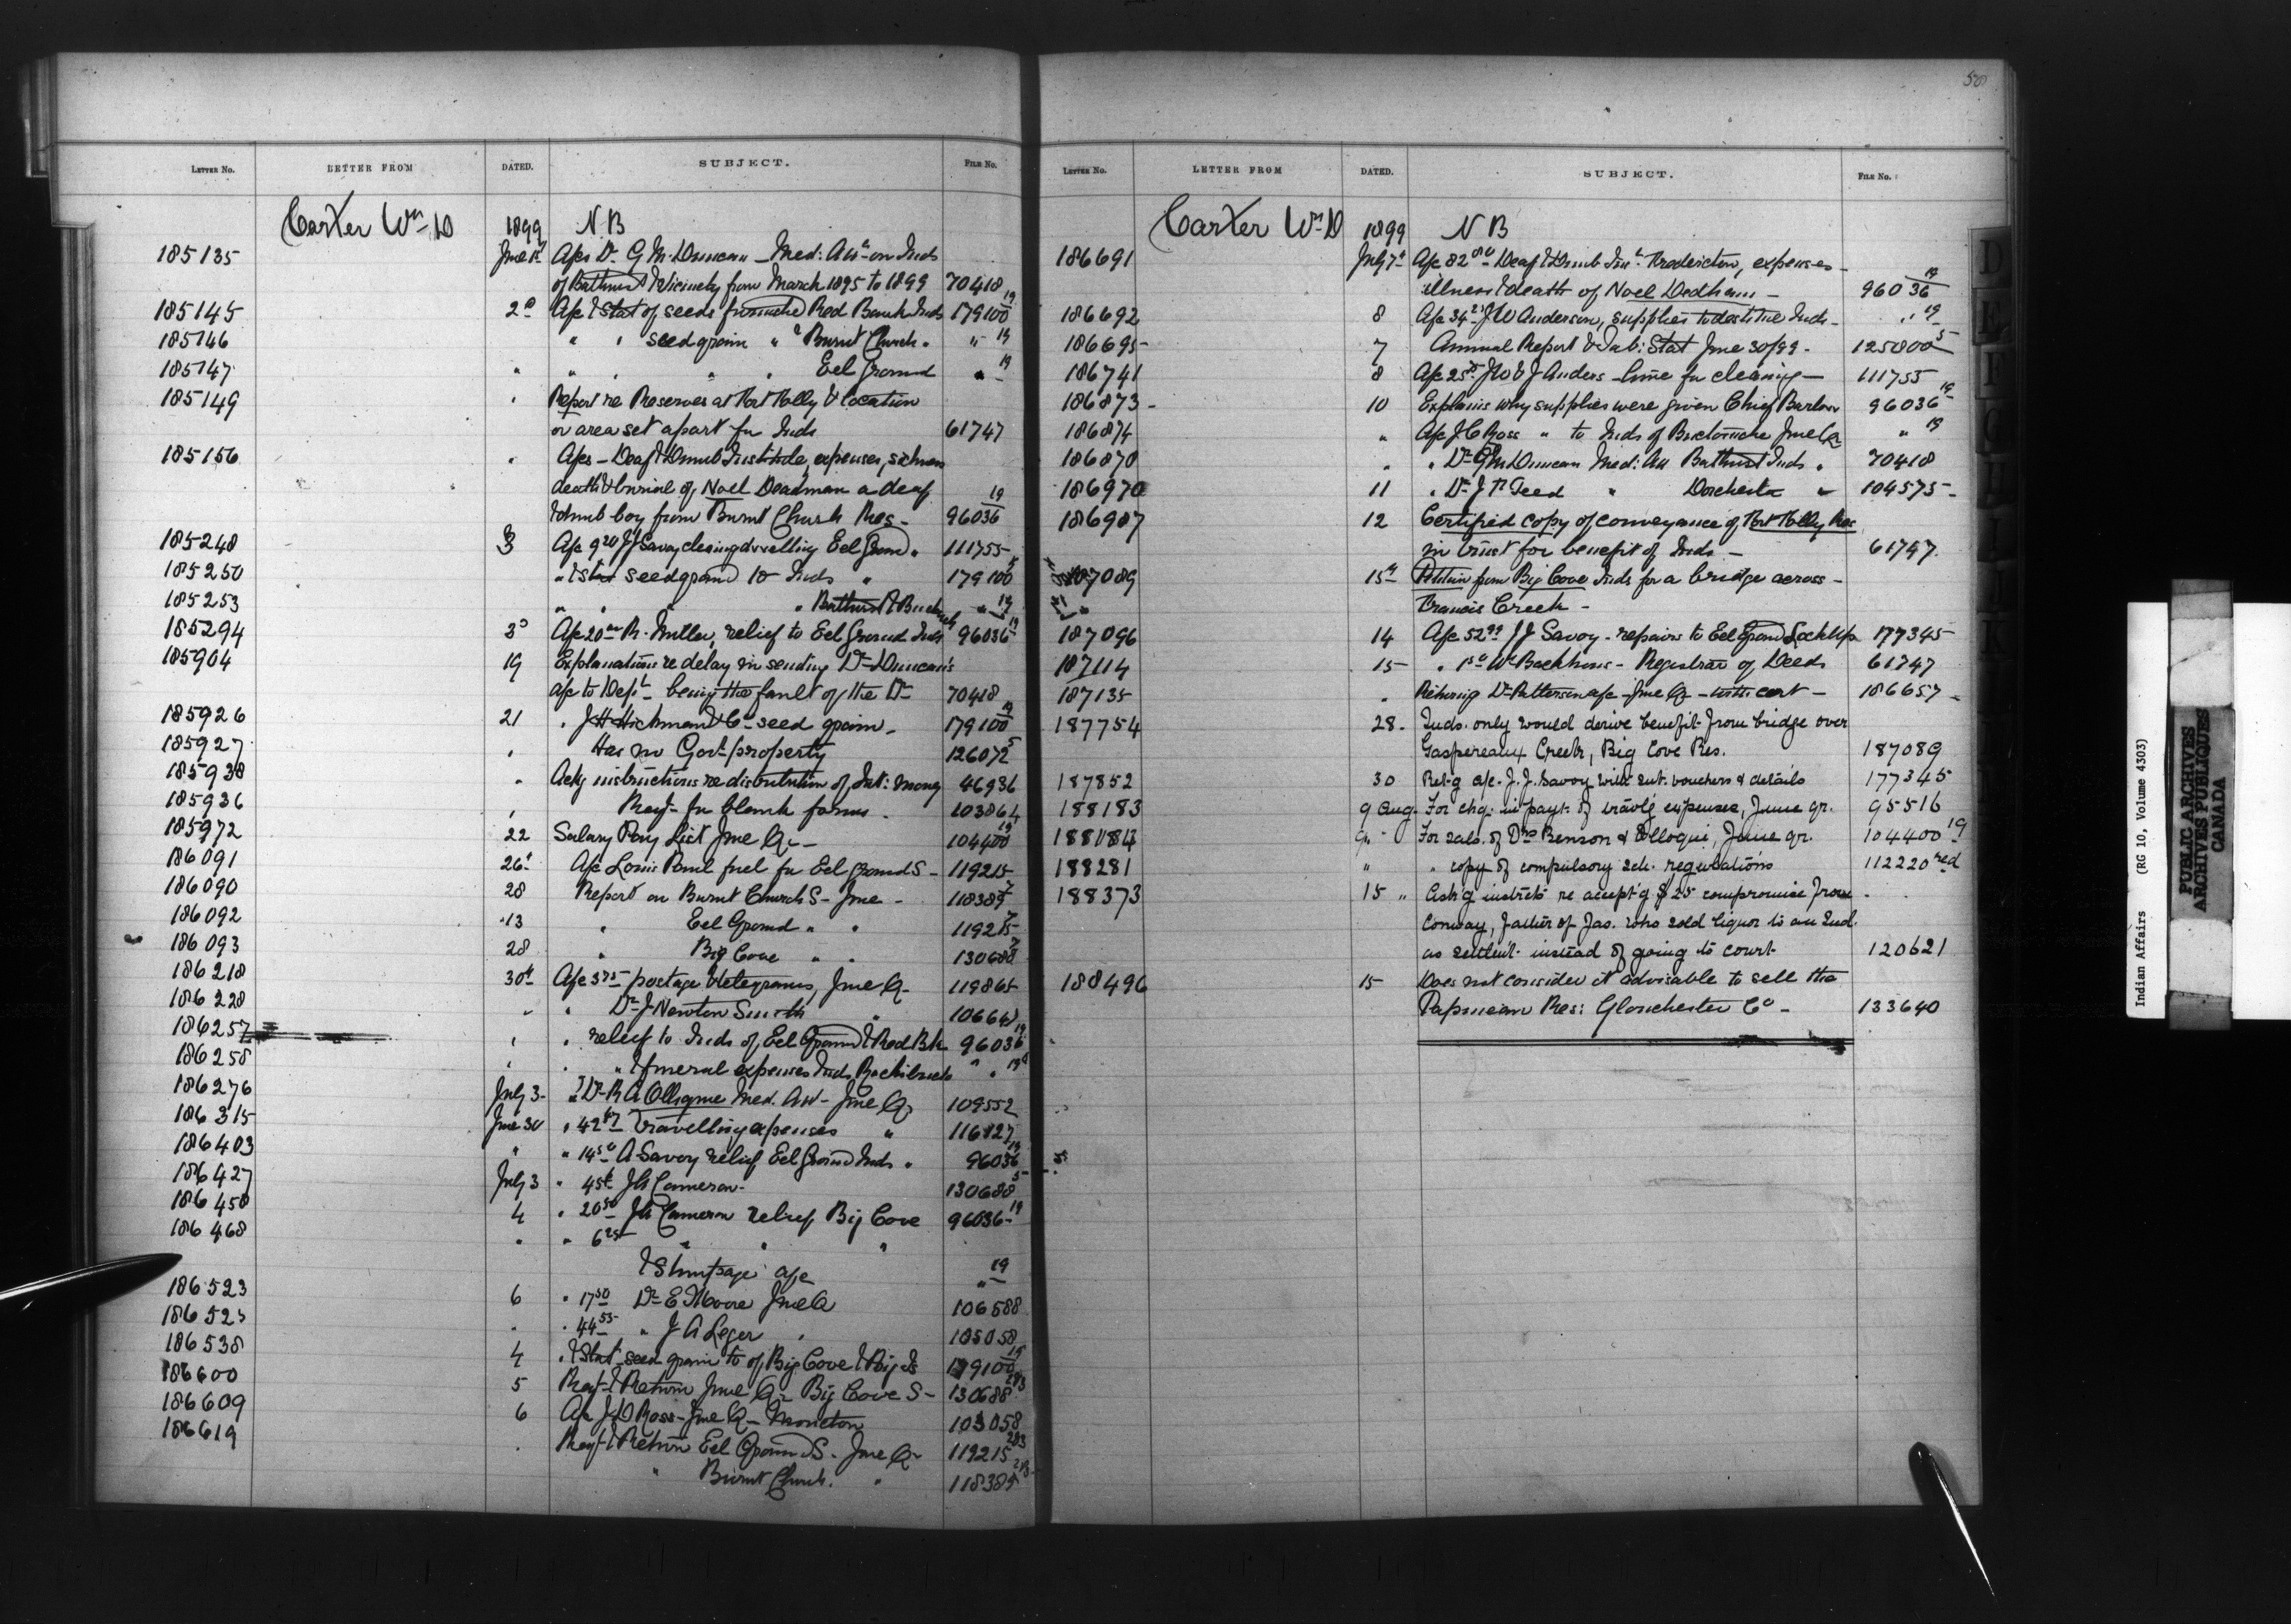 LETTER NO. LETTER FROM DATED. SUBJECT. FILE NO.
Carter Wm D 1899 N B
185135 June 1st A/cs Dr G M Duncan - Med: Att- on Inds
of Bathurst & Vicinity from March 1895 to 1899 70418
185145 2d A/c & Stat of seeds furnished Red Bank Inds 179100 19
185146 " " seed grain " " Burnt Church " " 19
185147 " " " " " Eel Ground " 19
185149 " Report re Reserves at Fort Folly & location
or area set apart for Inds 61747
185156 " A/cs - Deaf & Dumb Institute, expenses, sickness
death & burial of Noel Deadman a deaf
& dumb boy from Burnt Church Res - 96036 19
185248 3 A/c 9 20 J J Savoy cleaning dwelling Eel Ground " 111755
185250 " & stat seed grain to Inds " 179100
185253 " " " " Bathurst & " 19
185294 3d A/c 20 R. Miller, relief to Eel Ground Inds 96036 19
185904 19 Explanations re delay in sending Dr Duncan's
a/c to Dept - being the fault of the Dr 70418
185926 21 " J H Hickman & Co - seed grain - 179100 19
185927 " Has no Govt property 126072 5
185938 " Ackg instructions re distribution of Int: money 46936
185936 " Reqt for blank forms - 103864
185972 22 Salary Pay List June Qr - 104400 19
186091 26th A/c Louis Paul fuel for Eel Ground S - 119215
186090 28 Report on Burnt Church S - June - 118385 7
186092 13 " Eel Ground " " 119215 7
186093 28 " Big Cove " " 130688 7
186218 30th A/c 3 75 postage & telegrams, June Qr 119865
186228 " " Dr J Newton Smith "
186257 " " relief to Inds of Eel Ground & Red Bk 96036 19
186258 " " " & funeral expenses Inds Richibucto " " 19
186276 July 3 - " Dr R A Olloqui Med. Att - June Qr 109552
186315 June 30 " 42 travelling expenses " 116827
186403 " " 14 50 A Savoy relief Eel Ground Inds " 96036 19
186427 July 3 " 45 J A Cameron - 130688 5
186450 4 " 20 50 J A Cameron relief Big Cove 96036 19
186468 " " 6 25 " " "
& Stumpage a/c " 19
186523 6 " 17 50 Dr E Moore June Q 106588
" " 44 55 " J A Leger " 105058
186538 4 " & Stat seed grain to of Big Cove & Big Is 179100 19
186600 5 Reqt & Return June Qr Big Cove S - 130688
186609 6 A/c J D Ross - June Qr - Moncton 103058
186619 " Reqt & Return Eel Ground S - June Qr 119215
" Burnt Church " 118385
58
LETTER NO. LETTER FROM DATED. SUBJECT. FILE NO.
Carter Wm D 1899 N B
186691 July 7th A/c 82 80 Deaf & Dumb Inst - Fredericton, expenses -
illness & death of Noel Dedham - 96036 19
186692 8 A/c 34 21 J W Anderson, supplies to destitute Inds - " 19
186695 7 Annual Report & Tab: Stat June 30/99 - 125800 5
186741 8 A/c 25 J W & J Anders - lime for cleaning - 111755
186873 - 10 Explains why supplies were given Chief Barlow 96036 19
186874 " A/c J C Ross " to Inds of Buctouche June Qr " 19
186870 " " Dr G M Duncan Med: Att Bathurst Inds " 70418
186970 11 " Dr J R Teed " Dorchester " 104575 -
186987 12 Certified copy of conveyance of Fort Folly Res
in trust for benefit of Inds - 61747
187089 15th Petition from Big Cove Inds for a bridge across -
Francis Creek -
187096 14 A/c 52 99 J J Savoy - repairs to Eel Ground Lockup 177345
187114 15 " 1 50 Wm Backhouse - Registrar of Deeds 61747
187135 " Returng Dr Patterson a/c - June Qr - with cert - 186657 -
187754 28 - Inds. only would derive benefit from bridge over
Gaspereaux Creek, Big Cove Res. 187089
187852 30 Ret-g a/c. J. J. Savoy with sub. vouchers & details 177345
188183 9 Aug. For chq. in payt. of travlg expenses, June qr. 95516
9 " For sals. of Drs Benson & Olloqui, June qr. 104400 19
188281 " " copy of compulsory sch. regulations 112220 red
188373 15 " Ask'g instrcts re accept'g $25 compromise from
Conway, father of Jas. who sold liquor to an Ind.
as settle't. instead of going to court. 120621
188496 15 Does not consider it advisable to sell the
Papineau Res: Gloucester Co - 133640
D
E
Indian Affairs (RG 10, Volume 4303)
PUBLIC ARCHIVES
ARCHIVES PUBLIQUES
CANADA